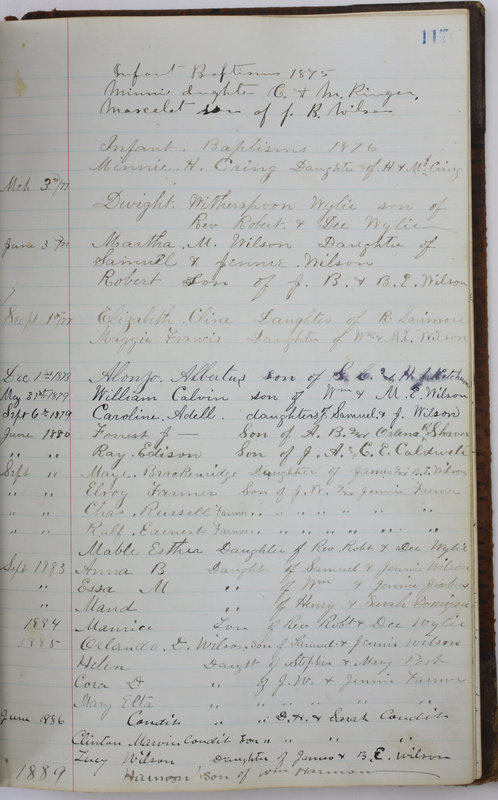 117
Infant Baptisms 1875
Minnie daughter C. & M. Ringer,
son of J. B. Wilson
Infant. Baptisms 1876
Minnie. H. Cring Daughter of H & M. Cring
Mch 3rd/77
Dwight. Witherspoon Wylie son of
Rev Robert. & Dee Wylie
June 3
Martha. M. Wilson Daughter of
Samuel & Jennie. Wilson
Robert son of J. B. & B. E. Wilson
Sept 1st/77 Elizabeth Cline Daughter of R Larimore
Maggie Francis Daughter of Wm & M. E. Wilson
Dec 1st 1878 Alonzo. Albertus son of S. C. & H.
May 31st 1879 William Calvin son of Wm & M. E. Wilson
Sept 6th 1879 Caroline. Adell. daughter of Samuel & J. Wilson
June 1880 Forrest J — Son of A. B. and Orlena Shaver
" " Ray. Edison Son of J. A. & C. E. Caldwell
Sept " Maye. Brackenridge Daughter of James and B. E. Wilson
" " Elroy Farmer Son of J. W. and Jennie Farmer
" " Chas. Russell Farmer " " " " " "
" " Ralf. Earnest Farmer " " " " " "
Mable Esther Daughter of Rev Robt & Dee Wylie
Sept 1883 Anna B Daughter of Samuel & Jennie Wilson
" Essa M " of Wm & Jennie
" Maud " of Henry & Sarah
1884 Maurice Son of Rev Robt & Dee Wylie
1885 Orlando. D. Wilson. son of Samuel & Jennie Wilson
Helen Daught of Stephen & Mary Post
Cora D " of J. W. & Jennie Farmer
Mary Etta " " " " "
June 1886 Condit " " D. H. & Sarah Condit
Clinton Marvin Condit Son " " " "
Lucy Wilson Daughter of James & B. E. Wilson
1889 Harmon son of Wm Harmon